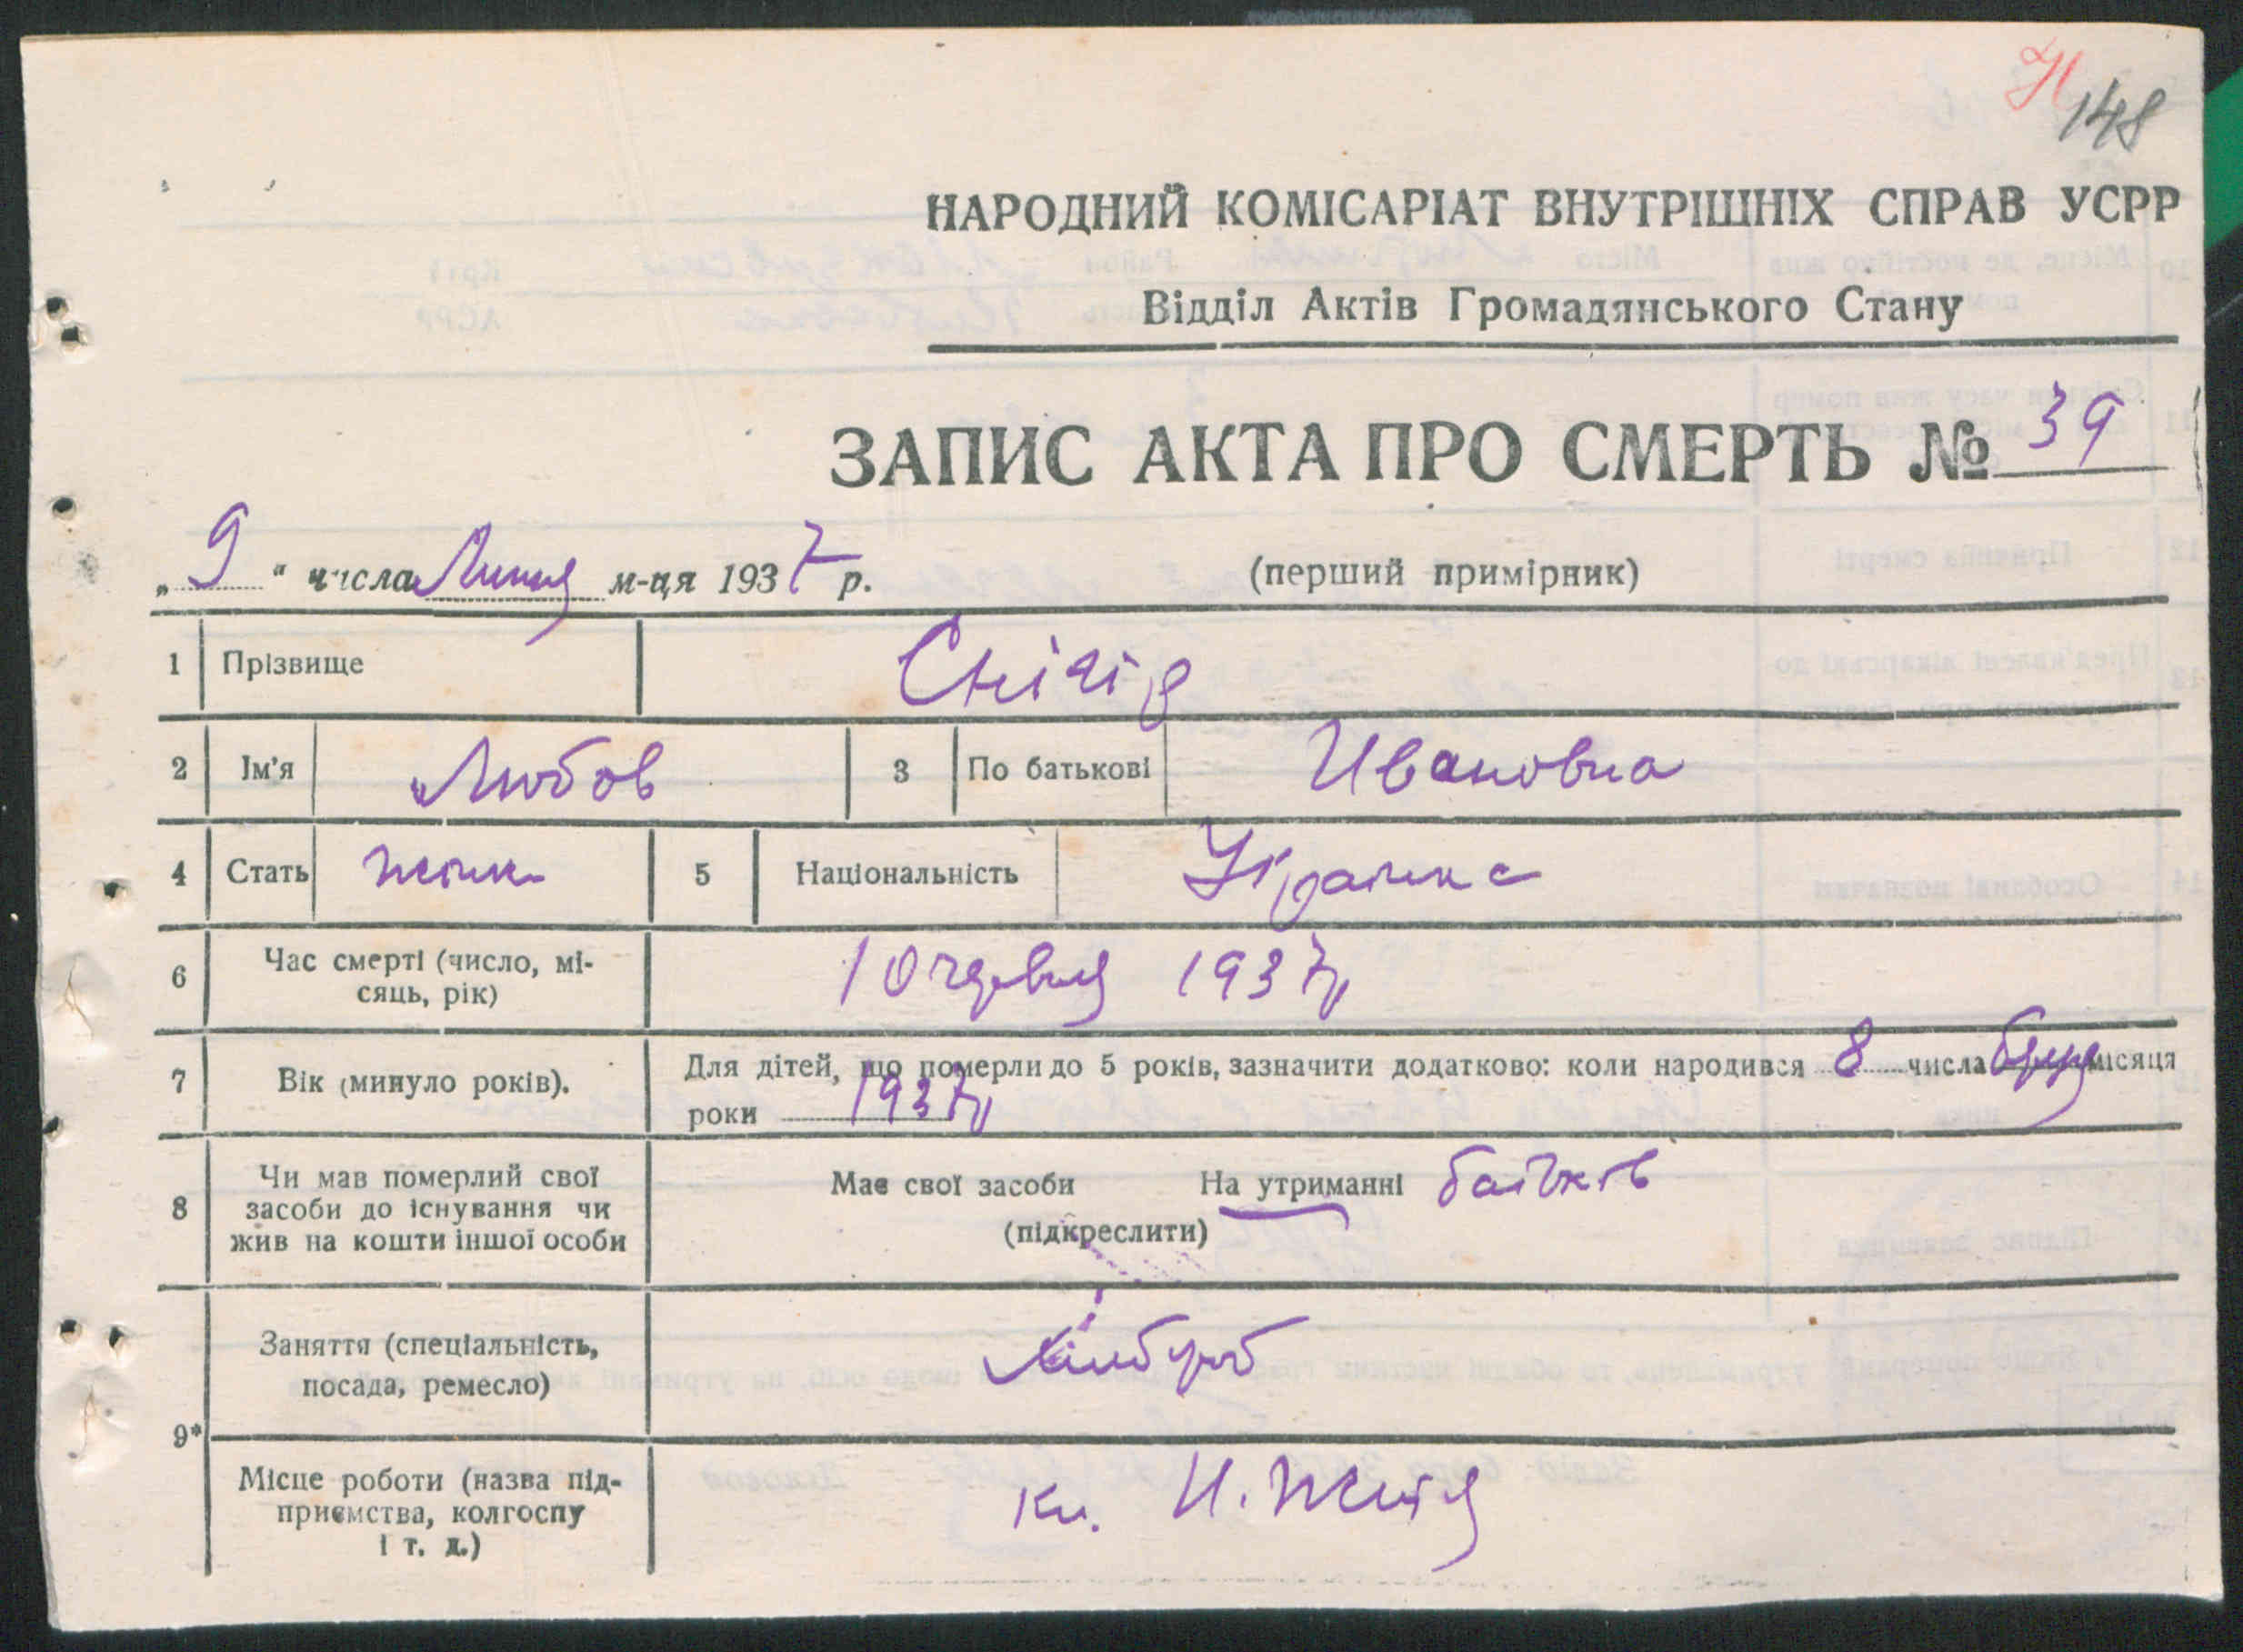 148
НАРОДНИЙ КОМІСАРІАТ ВНУТРІШНІХ СПРАВ УСРР
Відділ Актів Громадянського Стану
ЗАПИС АКТА ПРО СМЕРТЬ № 39
„ 9 " числа Липня м-ця 1937 р. (перший примірник)
1 Прізвище Снігір
2 Ім'я Любов 3 По батькові Ивановна
4 Стать жінк 5 Національність Українка
6 Час смерті (число, мі-
сяць, рік) 10 червня 1937р
7 Вік (минуло років). Для дітей, що померли до 5 років, зазначити додатково: коли народився 8 числа місяця
роки 1937р
8 Чи мав померлий свої
засоби до існування чи
жив на кошти іншої особи
Має свої засоби На утриманні батьків
(підкреслити)
9* Заняття (спеціальність,
посада, ремесло)
Місце роботи (назва під-
приємства, колгоспу
і т. д.) Н. Життя